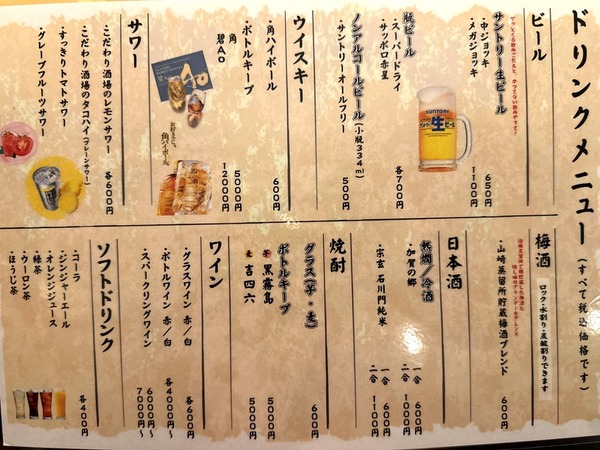 ドリンクメニュー(すべて税込価格です)
ビール
サントリー生ビール
・中ジョッキ 650円
・メガジョッキ 1100円
SUNTORY
生
ビール
瓶ビール
・スーパードライ
・サッポロ赤星
各700円
ノンアルコールビール(小瓶334ml)
・サントリーオールフリー 500円
ウイスキー
・角ハイボール 600円
・ボトルキープ
角 5000円
碧AO 12000円
AO
角ハイボール
サワー
・こだわり酒場のレモンサワー
・こだわり酒場のタコハイ(プレーンサワー)
・すっきりトマトサワー
・グレープフルーツサワー
各600円
梅酒 ロック・水割り・炭酸割りできます
・山崎蒸留所貯蔵梅酒ブレンド 600円
日本酒
熱燗/冷酒
・加賀の郷 一合 600円
二合 1000円
・宗玄 石川門純米 一合 600円
二合 1100円
焼酎
グラス(芋・麦) 600円
ボトルキープ
芋 黒霧島 5000円
麦 吉四六 5000円
ワイン
・グラスワイン 赤/白 各600円
・ボトルワイン 赤/白 各4000円〜
・スパークリングワイン 6000円〜
7000円〜
ソフトドリンク
・コーラ
・ジンジャーエール
・オレンジジュース
・緑茶
・ウーロン茶
・ほうじ茶
各400円